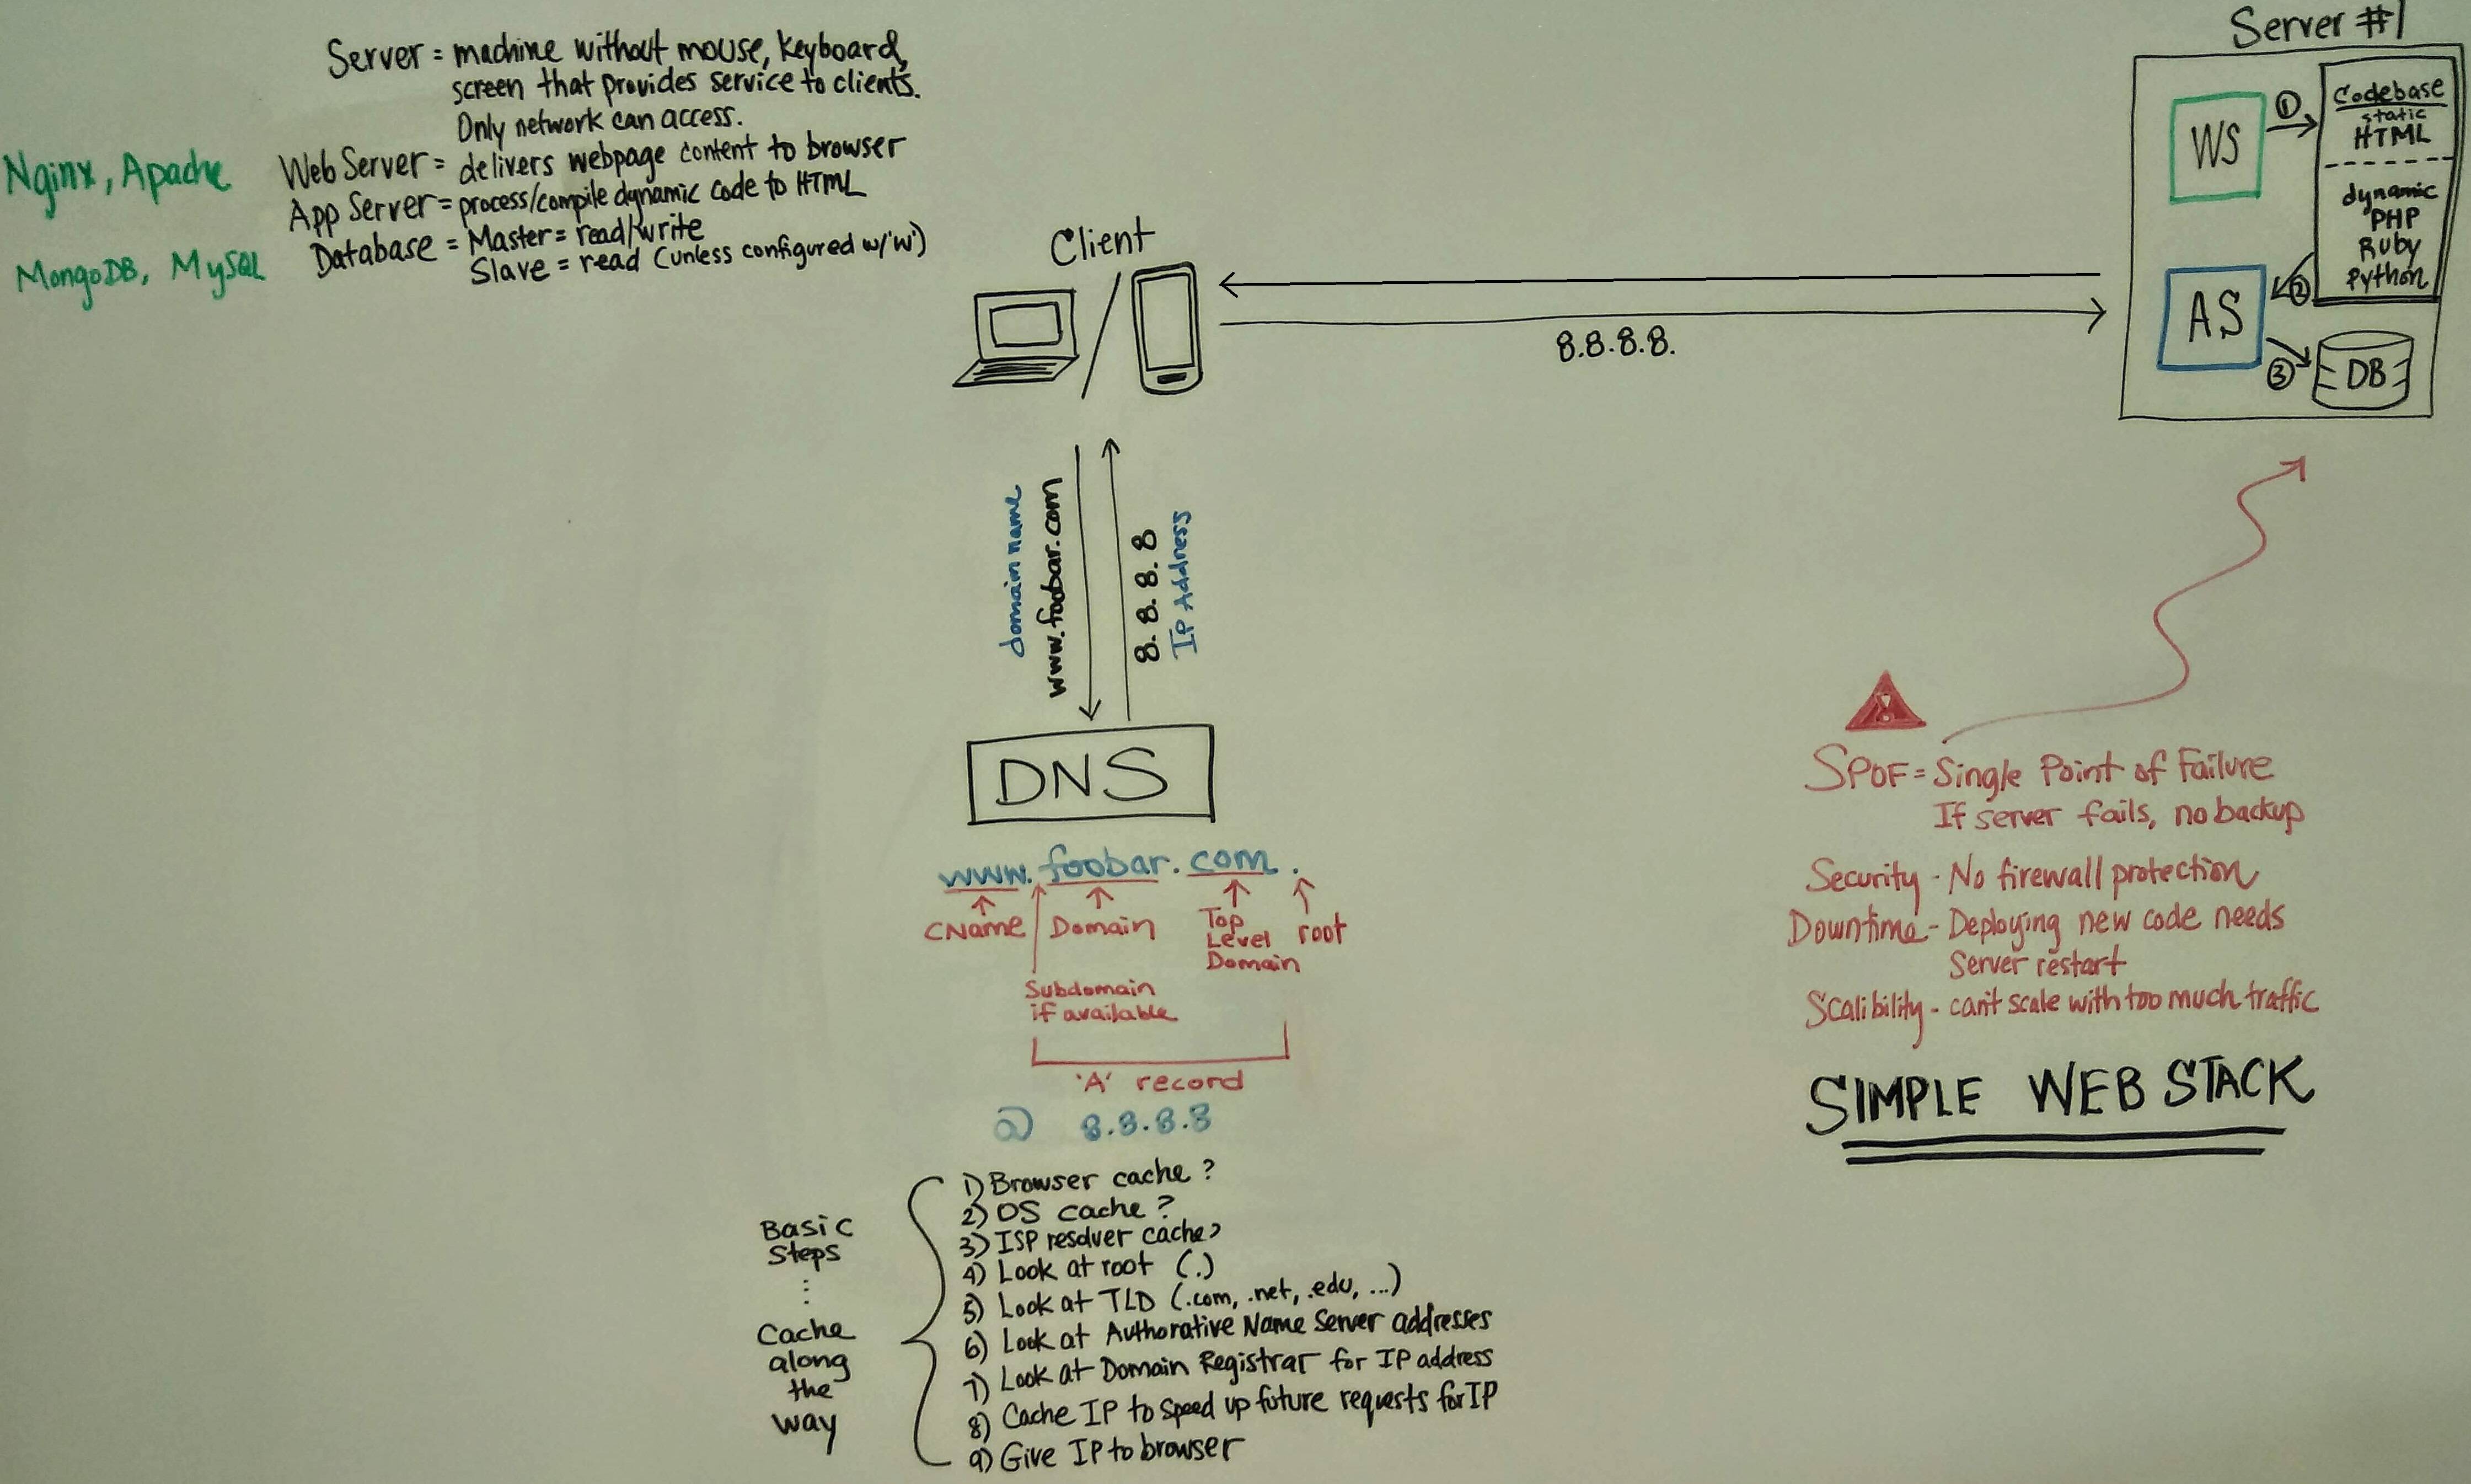 Server = machine without mouse, keyboard,
screen that provides service to clients.
Only network can access.
Nginx, Apache
Web Server = delivers webpage content to browser
App Server = process/compile dynamic code to HTML
MongoDB, MySQL
Database = Master = read/write
Slave = read (unless configured w/'w')
Client
8.8.8.8.
Server #1
WS
①
Codebase
static
HTML
dynamic
PHP
Ruby
Python
②
AS
③
DB
domain name
www.foobar.com
8.8.8.8
IP Address
DNS
www.foobar.com.
CName
Domain
Top
Level
Domain
root
Subdomain
if available
'A' record
@ 8.8.8.8
Basic
Steps
⋮
Cache
along
the
way
1) Browser cache?
2) OS cache?
3) ISP resolver cache?
4) Look at root (.)
5) Look at TLD (.com, .net, .edu, ...)
6) Look at Authorative Name Server addresses
7) Look at Domain Registrar for IP address
8) Cache IP to speed up future requests for IP
9) Give IP to browser
!
SPOF = Single Point of Failure
If server fails, no backup
Security - No firewall protection
Downtime - Deploying new code needs
Server restart
Scalibility - can't scale with too much traffic
SIMPLE WEB STACK